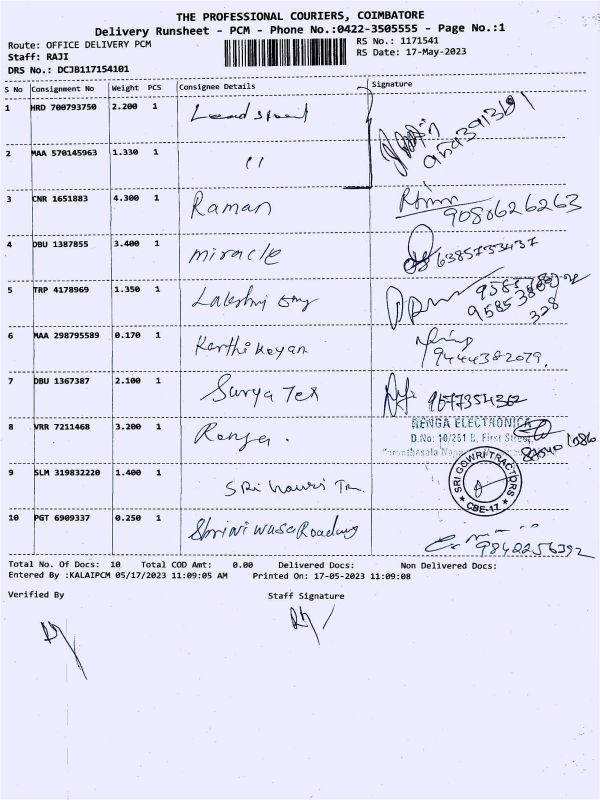 THE PROFESSIONAL COURIERS, COIMBATORE
Delivery Runsheet - PCM - Phone No.:0422-3505555 - Page No.:1
Route: OFFICE DELIVERY PCM RS No.: 1171541
Staff: RAJI RS Date: 17-May-2023
DRS No.: DCJB117154101
S No Consignment No Weight PCS Consignee Details Signature
1 HRD 700793750 2.200 1
2 MAA 570145963 1.330 1 "
3 CNR 1651883 4.300 1 Raman 9080626263
4 DBU 1387855 3.400 1 miracle 6385733437
5 TRP 4178969 1.350 1
6 MAA 298795589 0.170 1 Karthikeyan 9444382079.
7 DBU 1367387 2.100 1 Surya Tex 9677354362
8 VRR 7211468 3.200 1 RENGA ELECTRONICA
D.No: 10/251 B, First Street,
9 SLM 319832220 1.400 1 SRI GOWRI TRACTORS
CBE-17
10 PGT 6909337 0.250 1 9842256392
Total No. Of Docs: 10 Total COD Amt: 0.00 Delivered Docs: Non Delivered Docs:
Entered By :KALAIPCM 05/17/2023 11:09:05 AM Printed On: 17-05-2023 11:09:08
Verified By Staff Signature